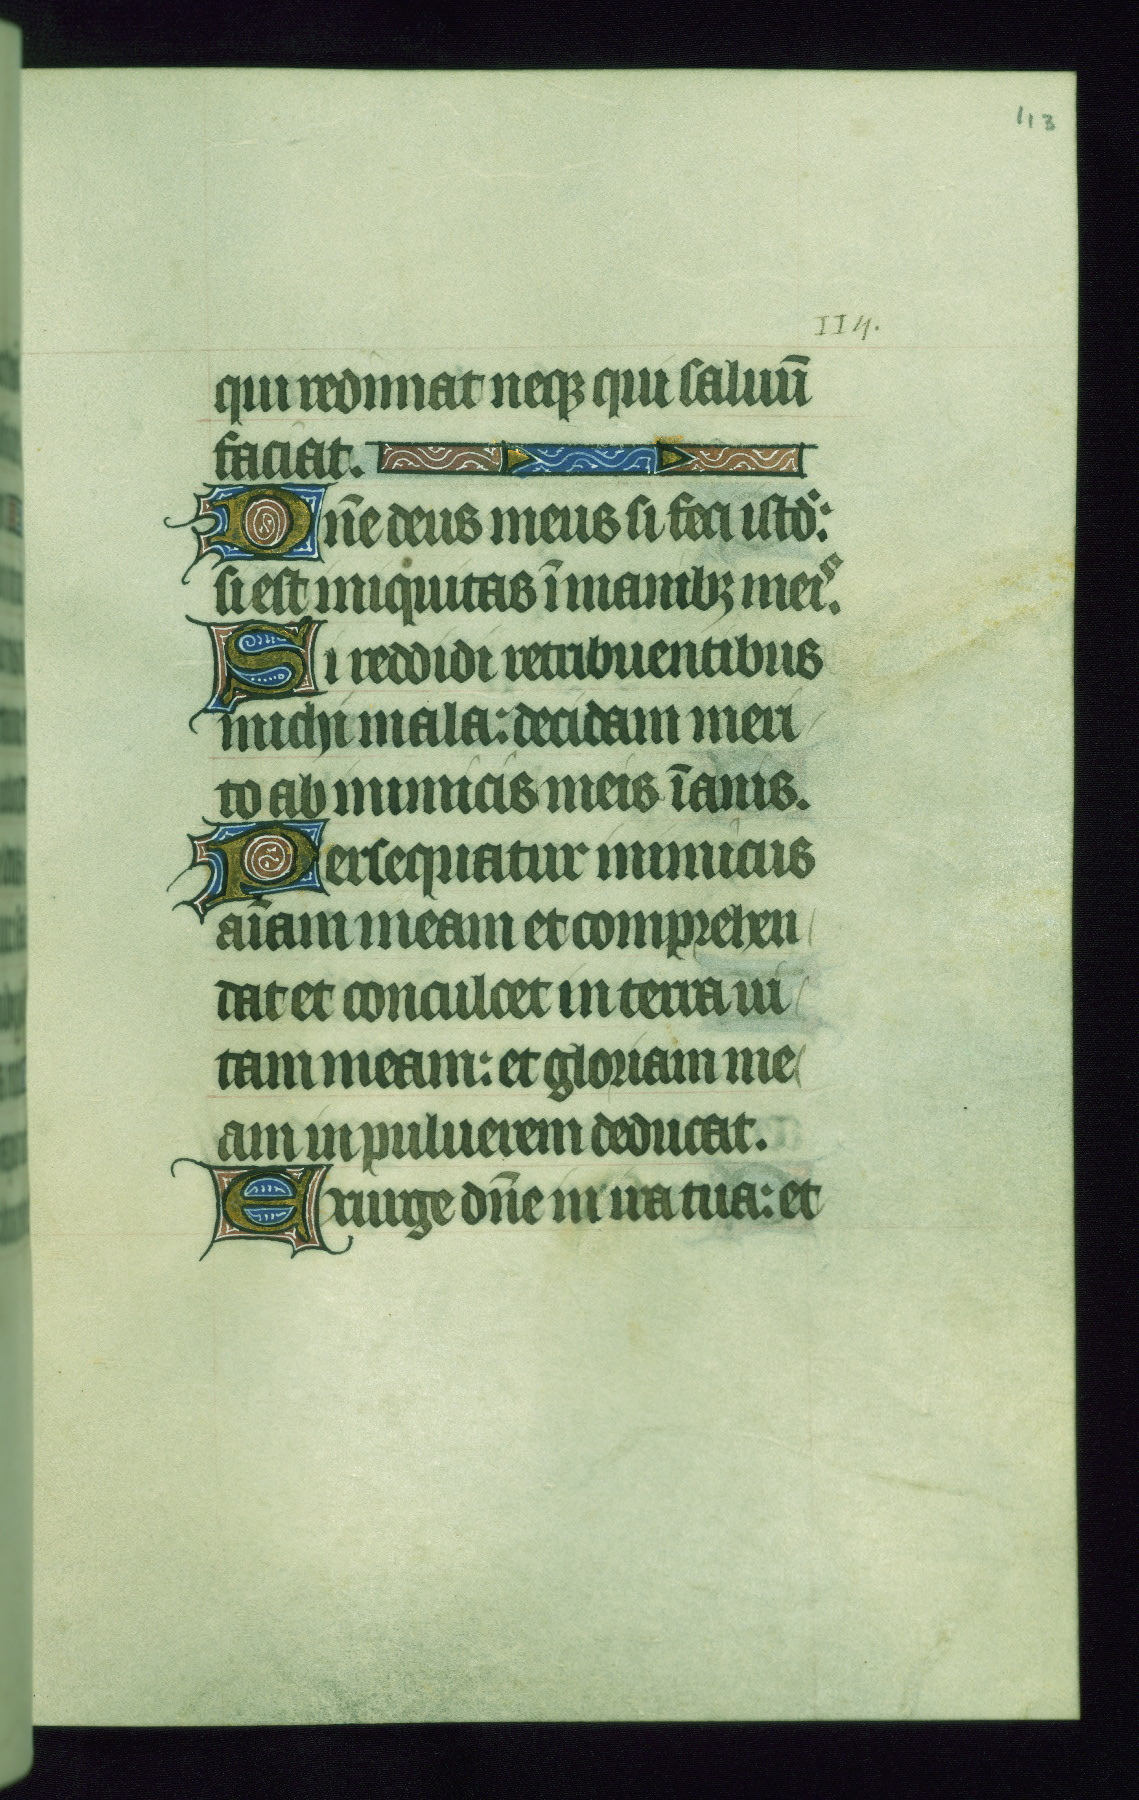 113
114.
qui redimat neqꝫ qui saluū
faciat.
Dn̄e deus meus si feci istd̊:
si est iniquitas ī manibꝫ meis.
Si reddidi retribuentibus
michi mala: decidam meri
to ab inimicis meis īanis.
Persequatur inimicus
aīam meam et comprehen
dat et conculcet in terra ui
tam meam: et gloriam me
am in puluerem deducat.
Exurge dn̄e in ira tua: et